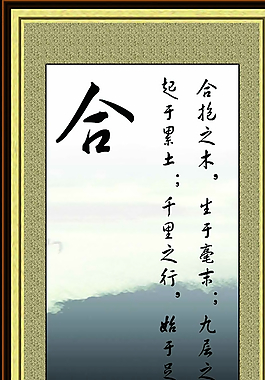 合
合抱之木，生于毫末；九层之
起于累土；千里之行，始于足